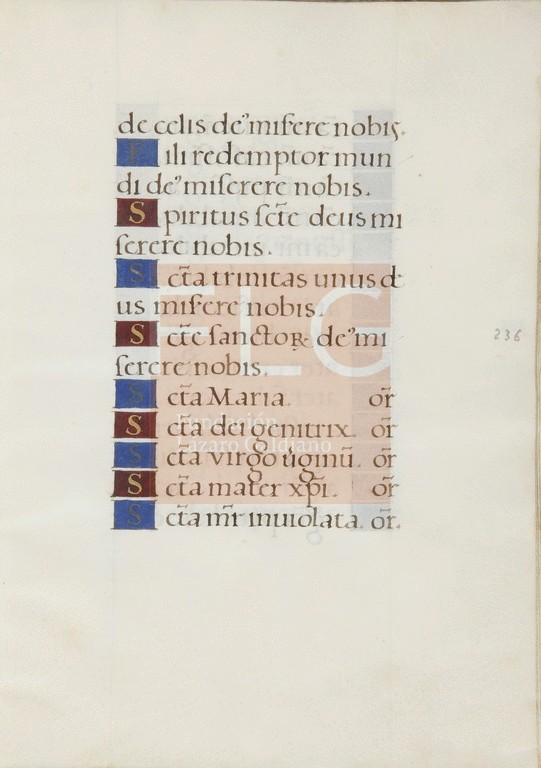 de celis de᷒ miſere nobis.
Fili redemptor mun
di de᷒ miſerere nobis.
Spiritus ſc̄te deus mi
ſerere nobis.
Sc̄ta trinitas unus de
us miſere nobis.
Sc̄te ſanctoꝝ de᷒ mi
ſerere nobis.
Sc̄ta Maria. or̄
Sc̄ta dei genitrix. or̄
Sc̄ta virgo ũginū. or̄
Sc̄ta mater xp̄i. or̄
Sc̄ta mr̄ inuiolata. or̄.
236
FLG
Fundación
Lázaro Galdiano